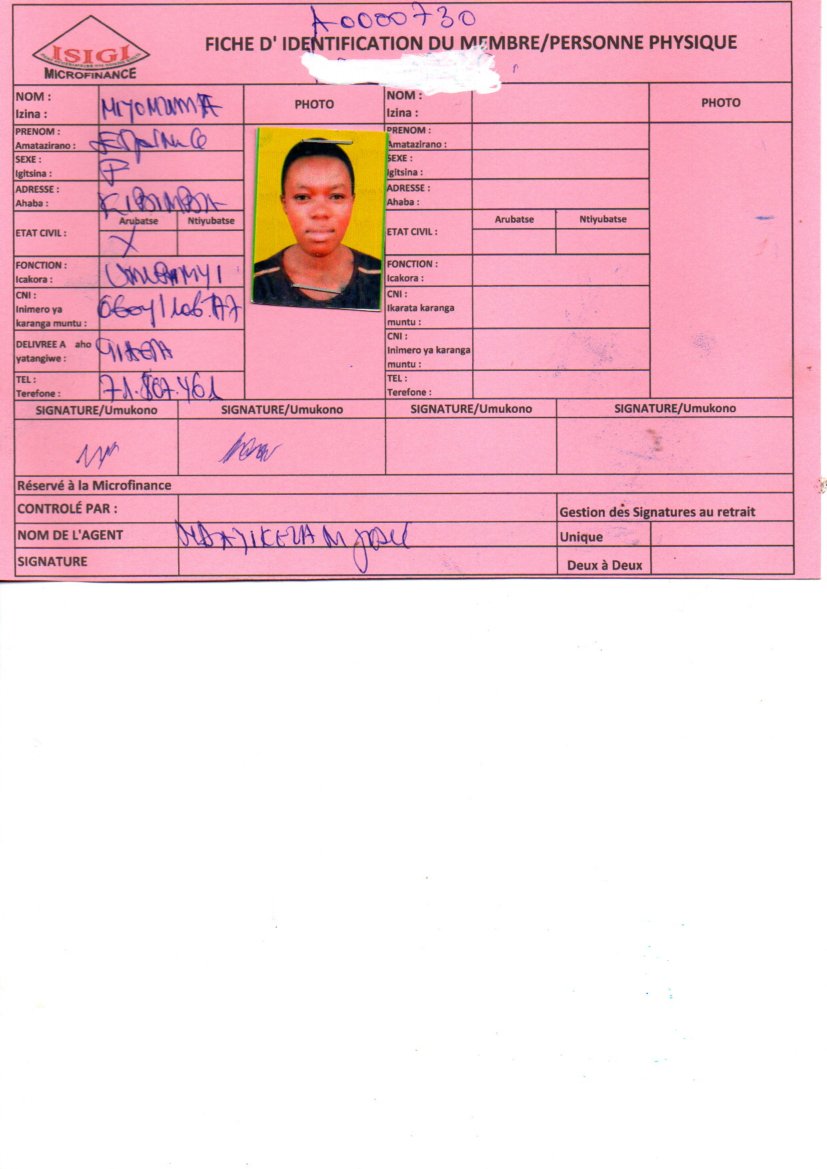 A0000730
ISIGI
MICROFINANCE
FICHE D' IDENTIFICATION DU MEMBRE/PERSONNE PHYSIQUE
NOM :
Izina :
PHOTO
NOM :
Izina :
PHOTO
PRENOM :
Amatazirano :
PRENOM :
Amatazirano :
SEXE :
Igitsina :
F
SEXE :
Igitsina :
ADRESSE :
Ahaba :
KIBIMBA
ADRESSE :
Ahaba :
ETAT CIVIL :
Arubatse
Ntiyubatse
X
ETAT CIVIL :
Arubatse
Ntiyubatse
FONCTION :
Icakora :
UMURIMYI
FONCTION :
Icakora :
CNI :
Inimero ya
karanga muntu :
CNI :
Ikarata karanga
muntu :
DELIVREE A aho
yatangiwe :
CNI :
Inimero ya karanga
muntu :
TEL :
Terefone :
71.867.461
TEL :
Terefone :
SIGNATURE/Umukono
SIGNATURE/Umukono
SIGNATURE/Umukono
SIGNATURE/Umukono
Réservé à la Microfinance
CONTROLÉ PAR :
Gestion des Signatures au retrait
NOM DE L'AGENT
Unique
SIGNATURE
Deux à Deux